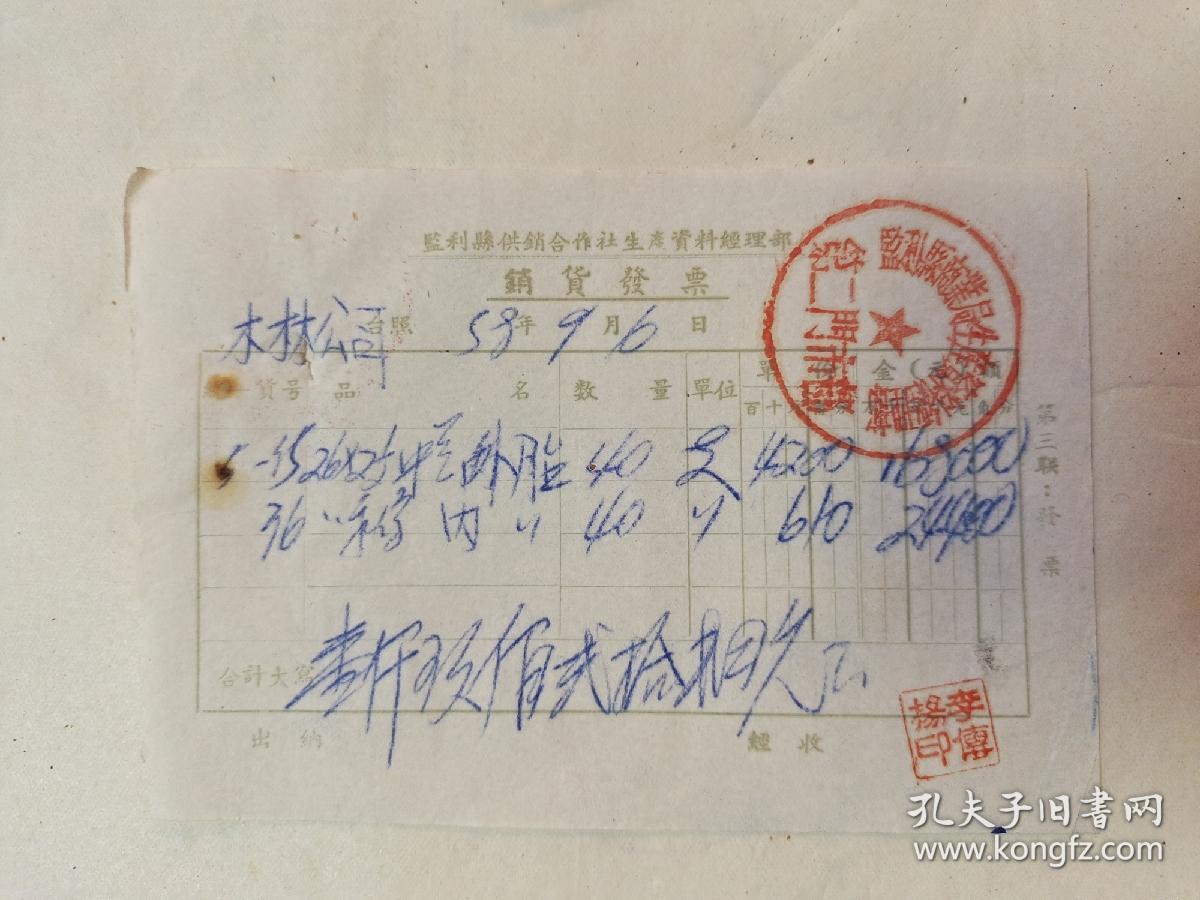 監利縣供銷合作社生產資料經理部
銷貨發票
木林公司 台照 58年9月6日
貨号 品名 数量 單位 單價 金(元)額
外胎 40 4200 168000
内〃 40 〃 610 24400
合計大寫 壹仟玖佰貳拾肆元正
出納 經收
第三聯：發票
監利縣商業局生產資料經理部
第二門市部
李傳楊印
孔夫子旧书网
www.kongfz.com